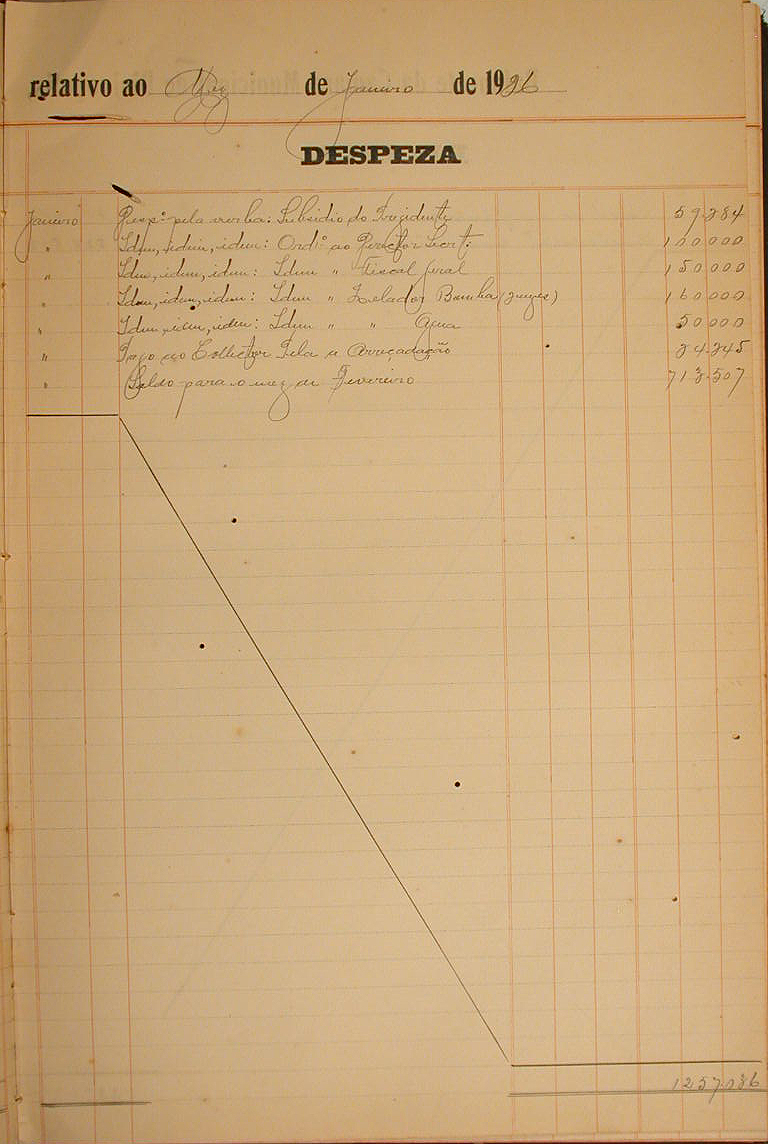 relativo ao Mez de Janeiro de 1926
DESPEZA
Janeiro pela verba: Subsidio do Prezidente 59.284
" Idem, idem, idem: Ord.º ao Director Secrt: 100.000
" Idem, idem, idem: Idem " Fiscal Geral 150.000
" Idem, idem, idem: Idem " Zelador Bomba 160.000
" Idem, idem, idem: Idem " " Agua 50.000
" Pago ao Collector Pela a Arrecadação 24.245
" Saldo para o mez de Fevereiro 713.507
1257.036